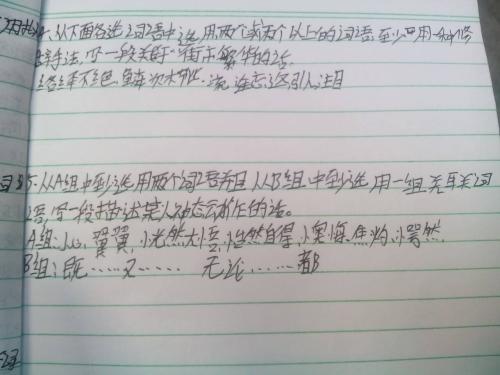 4.从下面备选词语中选用两个或两个以上的词语,至少用一种修
辞手法,写一段关于"街市繁华"的话。
络绎不绝 鳞次栉比 引人注目
5.从A组中至少选用两个词语并且从B组中至少选用一组关联词
语,写一段描述某人动态或静态的话。
A组:小心翼翼,恍然大悟,怡然自得,懊悔,焦灼,愕然.
B组:既……又…… 无论……都